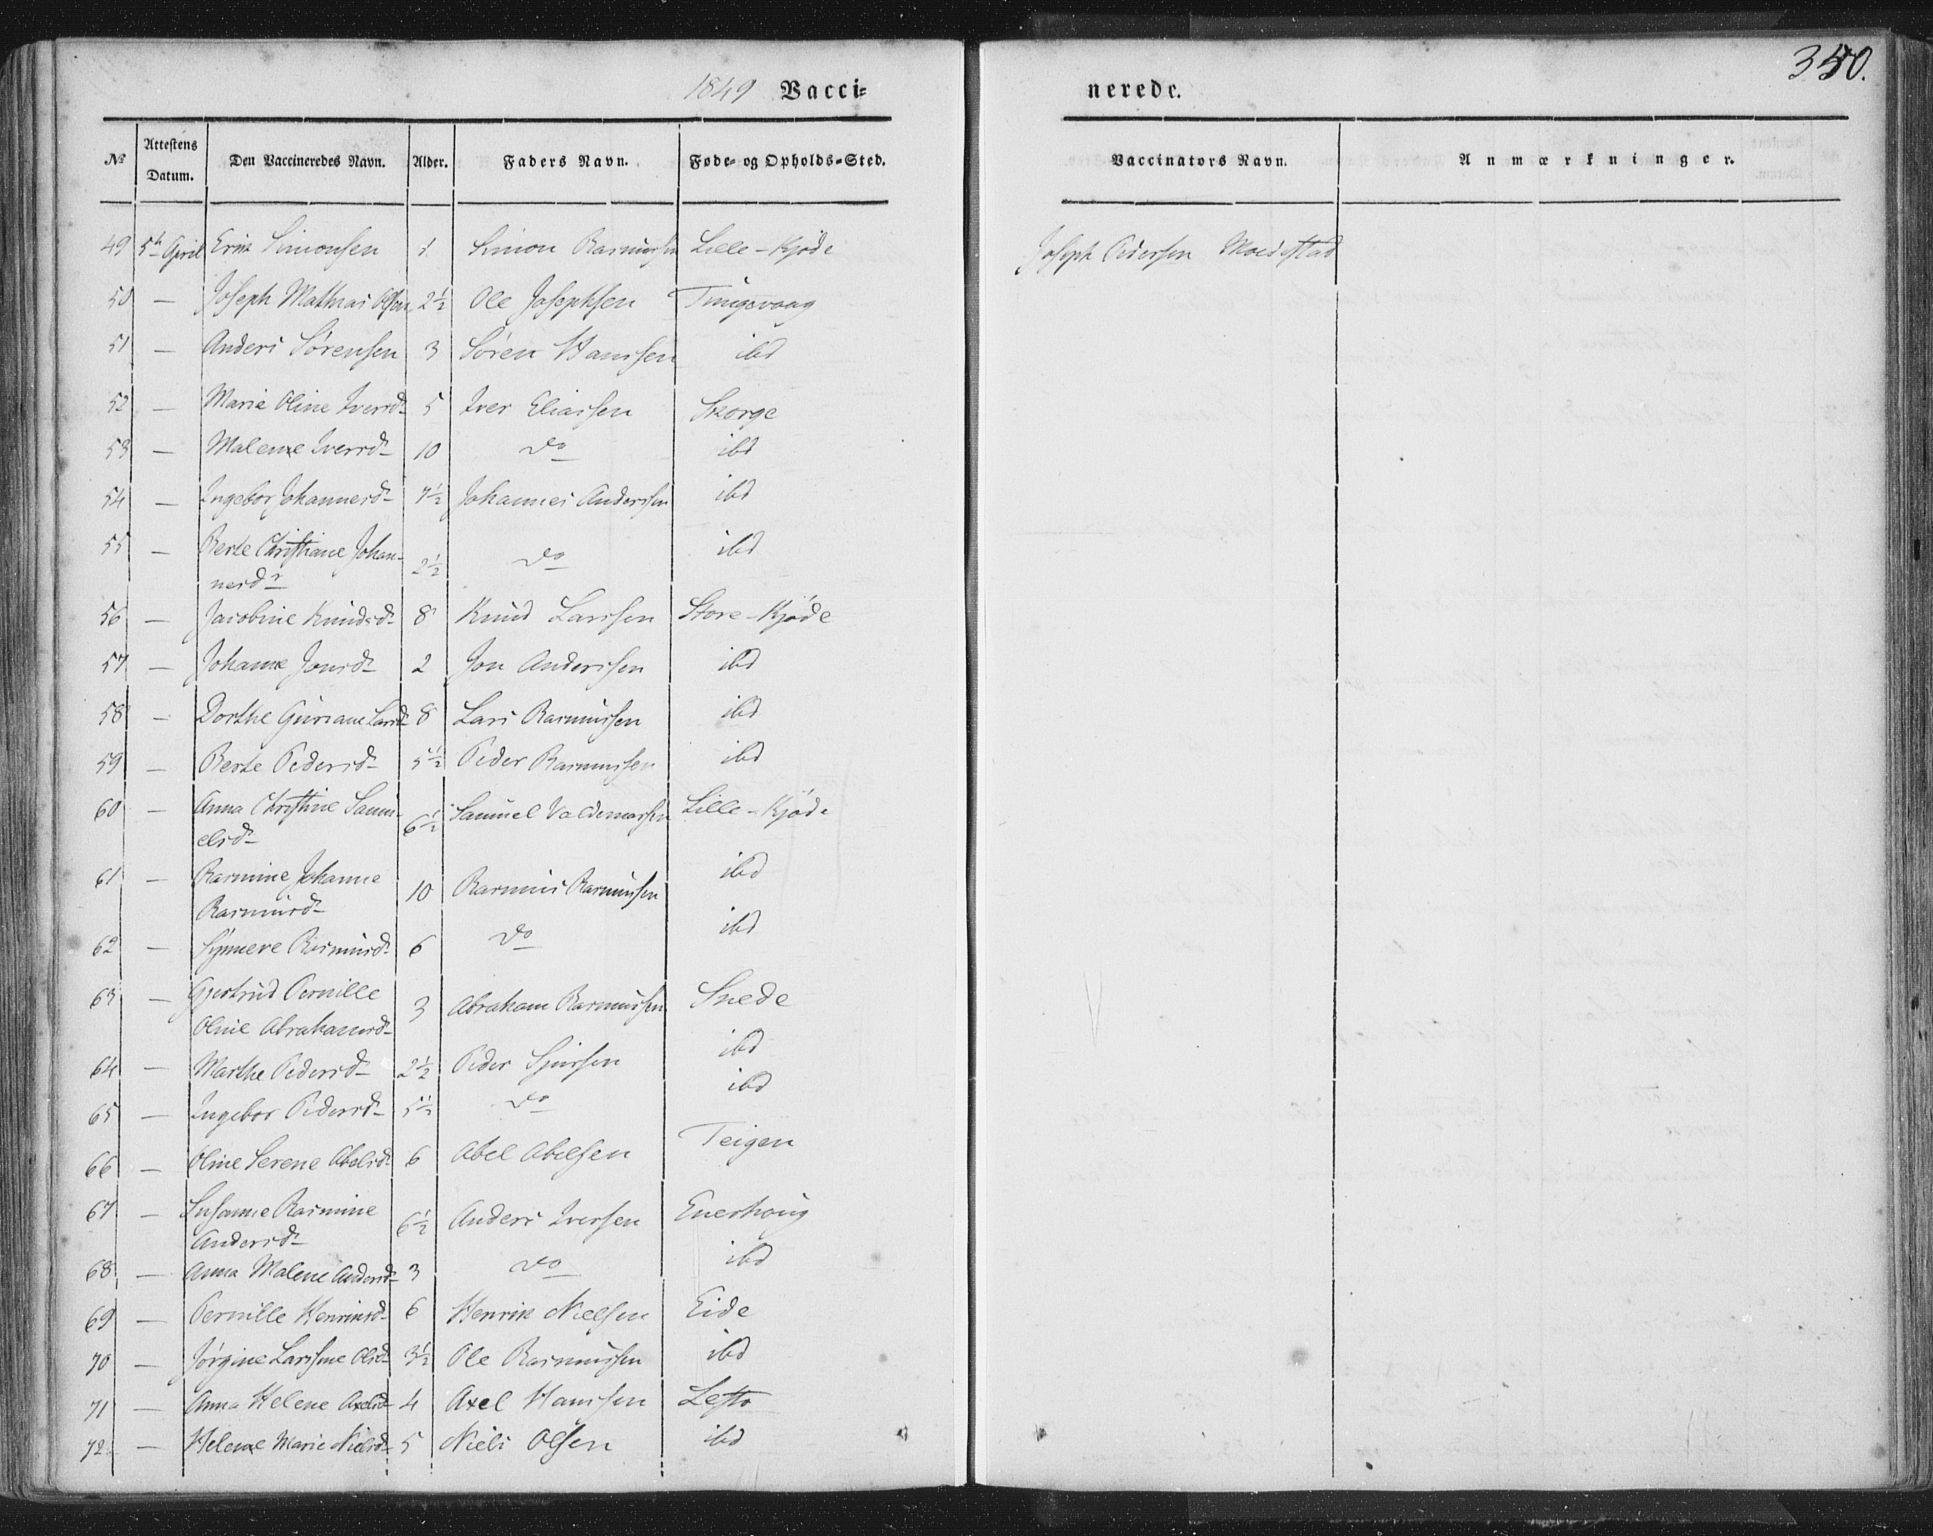 350.
1849 Vacci=
nerede.
No Attestens Datum. Den Vaccineredes Navn. Alder. Faders Navn. Føde- og Opholds-Sted. Vaccinators Navn. Anmærkninger.
49 5te April Erik Simonsen 1 Simon Rasmussen Lille-Kjøde Joseph Pedersen
50 — Joseph Mathias Olsen 2½ Ole Josephsen Tingsvaag
51 — Anders Sørensen 3 Søren Hanssen ibd
52 — Marie Oline Iversdr 5 Iver Eliassen Skorge
53 — Malene Iversdr 10 do ibd
54 — Ingebor Johannesdr 7½ Johannes Anderssen ibd
55 — Berte Christiane Johan-
nesdr 2½ do ibd
56 — Jacobine Knudsdr 8 Knud Larssen Store-Kjøde
57 — Johanne Jonsdr 2 Jon Anderssen ibd
58 — Dorthe Guriane Larsdr 8 Lars Rasmussen ibd
59 — Berte Pedersdr 5½ Peder Rasmussen ibd
60 — Anna Christine Samu-
elsdr 6½ Samuel Valdemarsen Lille-Kjøde
61 — Rasmine Johanne
Rasmusdr 10 Rasmus Rasmussen ibd
62 — Synneve Rasmusdr 6 do ibd
63 — Gjertrud Pernille
Oline Abrahamsdr 3 Abraham Rasmussen Snede
64 — Marthe Pedersdr 2½ Peder Sjursen ibd
65 — Ingebor Pedersdr 5½ do ibd
66 — Oline Serene Abelsdr 6 Abel Abelsen Teigen
67 — Susanne Rasmine
Andersdr 6½ Anders Iversen Enerhoug
68 — Anna Malene Andersdr 3 do ibd
69 — Pernille Henriksdr 6 Henrik Nielsen Eide
70 — Jørgine Larssine Olsdr 3½ Ole Rasmussen ibd
71 — Anna Helene Axelsdr 4 Axel Hanssen Lefto
72 — Helene Marie Nielsdr 5 Niels Olsen ibd